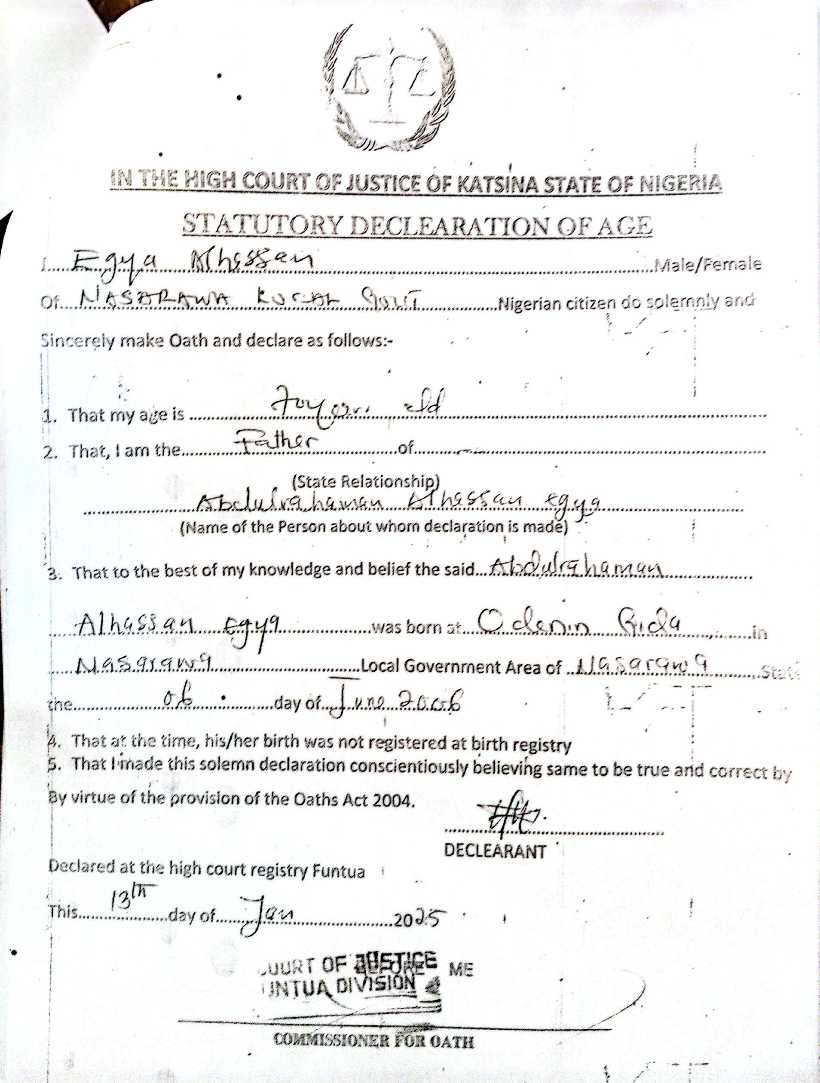 IN THE HIGH COURT OF JUSTICE OF KATSINA STATE OF NIGERIA
STATUTORY DECLEARATION OF AGE
I.....Egya Alhassan.....Male/Female
Of...NASARAWA LOCAL GOVT.....Nigerian citizen do solemnly and
Sincerely make Oath and declare as follows:-
1. That my age is ..... old.....
2. That, I am the.....Father.....of.....
(State Relationship)
.....Abdulrahaman Alhassan egya.....
(Name of the Person about whom declaration is made)
3. That to the best of my knowledge and belief the said...Abdulrahaman.....
.....Alhassan Egya.....was born at...Odenin Gida.....in
.....Nasarawa.....Local Government Area of ..Nasarawa.....State
the.....06.....day of...June 2006
4. That at the time, his/her birth was not registered at birth registry
5. That I made this solemn declaration conscientiously believing same to be true and correct by
By virtue of the provision of the Oaths Act 2004.
DECLEARANT
Declared at the high court registry Funtua
This.....13th.....day of.....Jan.....2025
COURT OF JUSTICE ME
FUNTUA DIVISION
COMMISSIONER FOR OATH